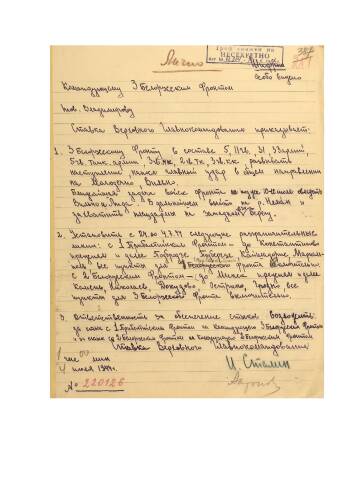 Гриф снят на
НЕСЕКРЕТНО
Лично
Особо важно
Командующему 3 Белорусским фронтом
тов. Владимирову
Ставка Верховного Главнокомандования приказывает:
1. 3 Белорусскому фронту в составе 5, 11 гв., 31, 33 армий,
5 гв. танк. армии, 3 гв. мк, 2 гв. тк, 3 гв. кк. развивать
наступление, нанося главный удар в общем направлении
на Молодечно, Вильно.
Ближайшая задача войск фронта не позже 10–12 июля овладеть
Вильно и Лида. В дальнейшем выйти на р. Неман и
захватить плацдармы на западном берегу.
2. Установить с 24.00 4.7.44 следующие разграничительные
линии: с 1 Прибалтийским фронтом – до
прежняя и далее
все пункты для 3 Белорусского фронта включительно;
с 2 Белорусским фронтом – до прежняя и далее
Гродно, все
пункты для 3 Белорусского фронта включительно.
3. Ответственность за обеспечение стыков возложить:
за стык с 1 Прибалтийским фронтом на командующего 3 Белорусским фронтом
и за стык со 2 Белорусским фронтом на командующего 2 Белорусским фронтом
Ставка Верховного Главнокомандования
час мин
4 июля 1944 г.
И. Сталин
Антонов
№ 220126